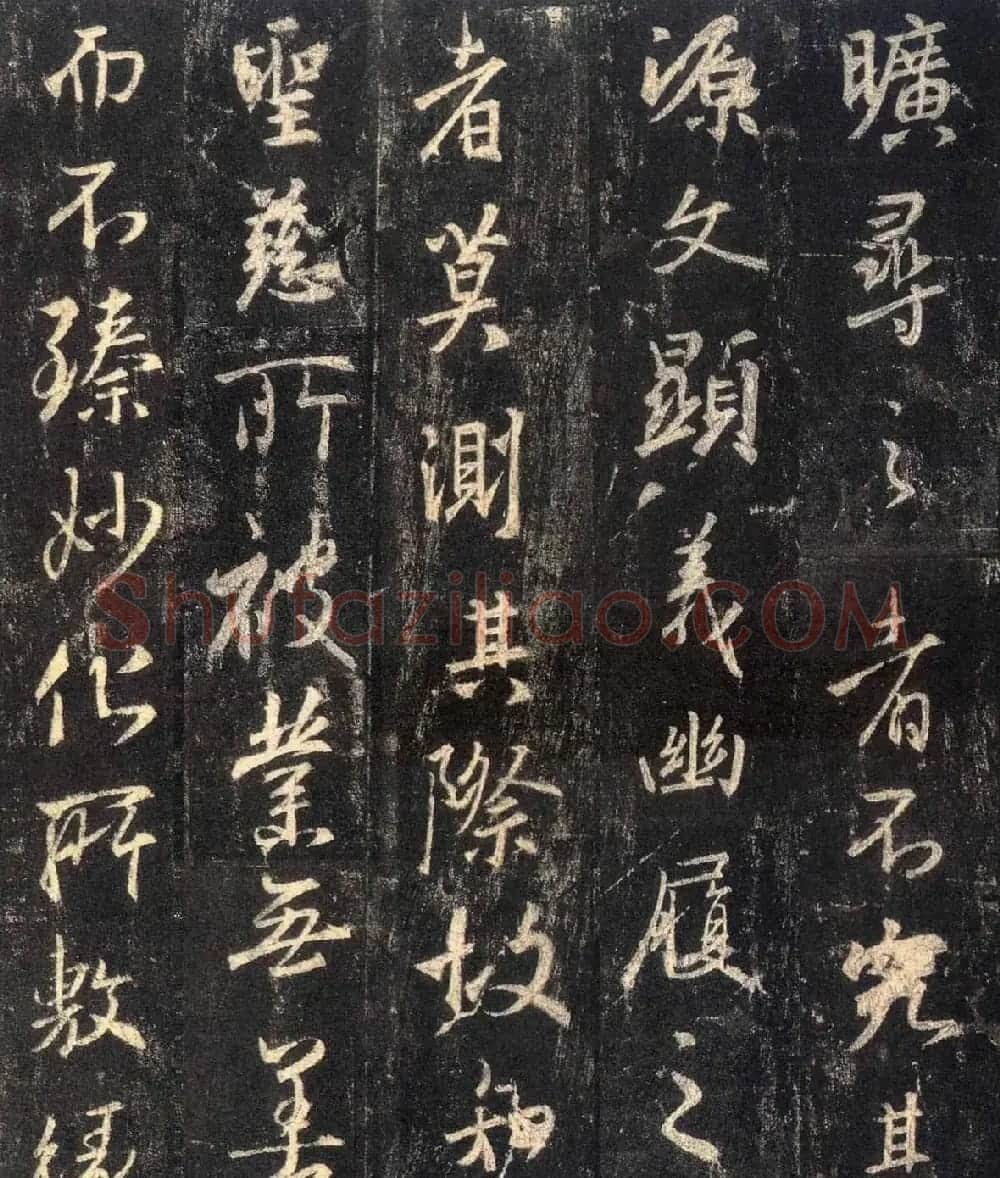 曠尋之者不究其
源文顯義幽履之
者莫測其際故知
聖慈所被業無善
而不臻妙化所敷緣
Shufaziliao.COM